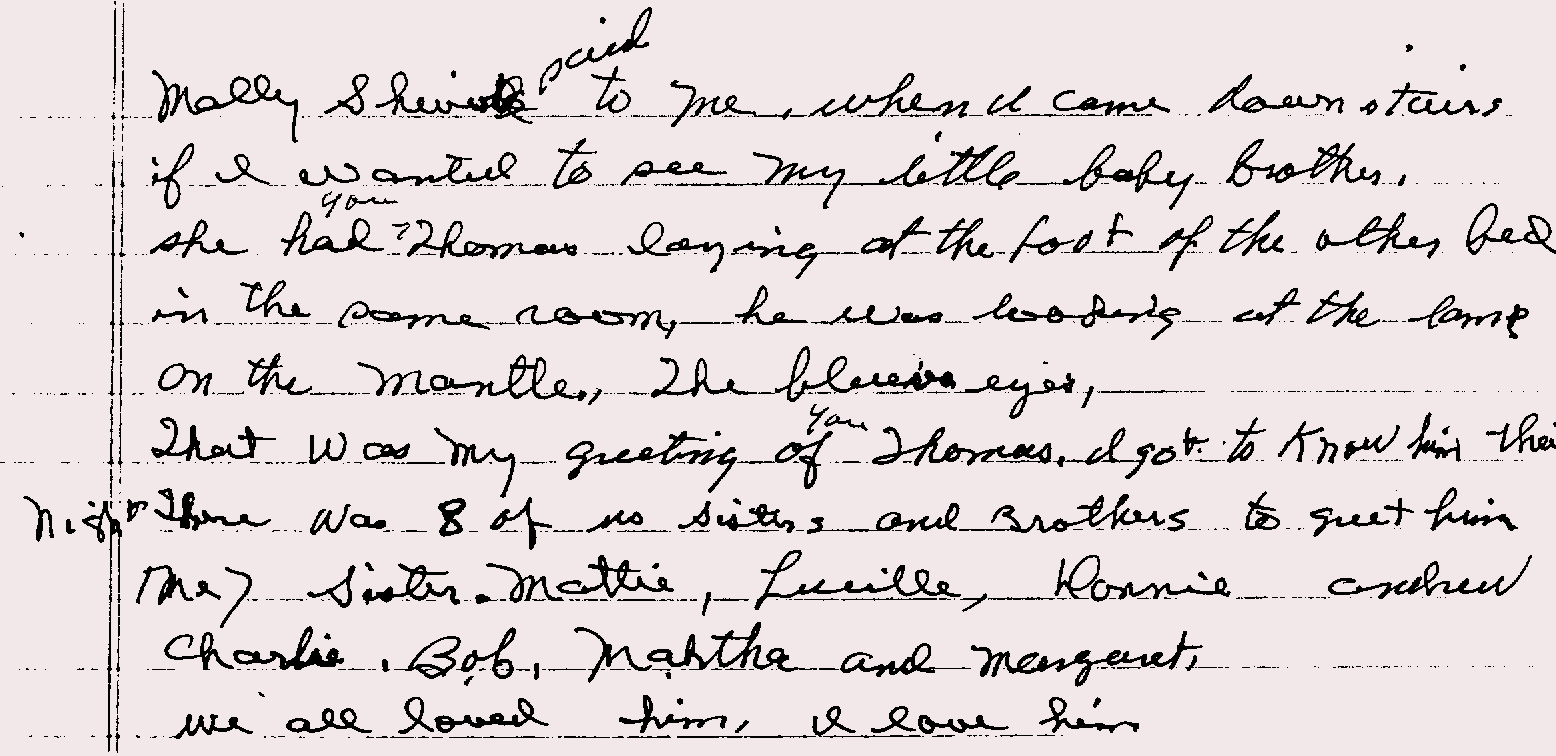 Mally said to me, when I came down stairs
if I wanted to see my little baby Brother.
she had you Thomas laying at the foot of the other bed
in the same room, he was looking at the lamp
on the Mantle, The blue eyes,
That was my greeting of you Thomas. I got to know him
Night There was 8 of us sisters and Brothers to greet him
(Me) Sister. Mattie, Lucille, Donnie andrew
Charlie, Bob, Martha and Margaret,
we all loved him, I love him